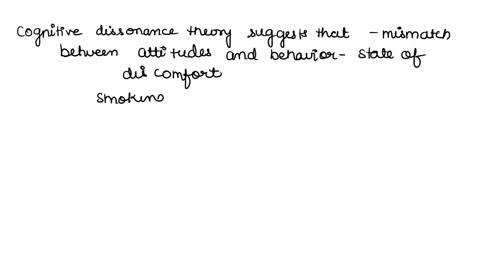 Cognitive dissonance theory suggests that - mismatch
between attitudes and behavior - state of
discomfort
smokin